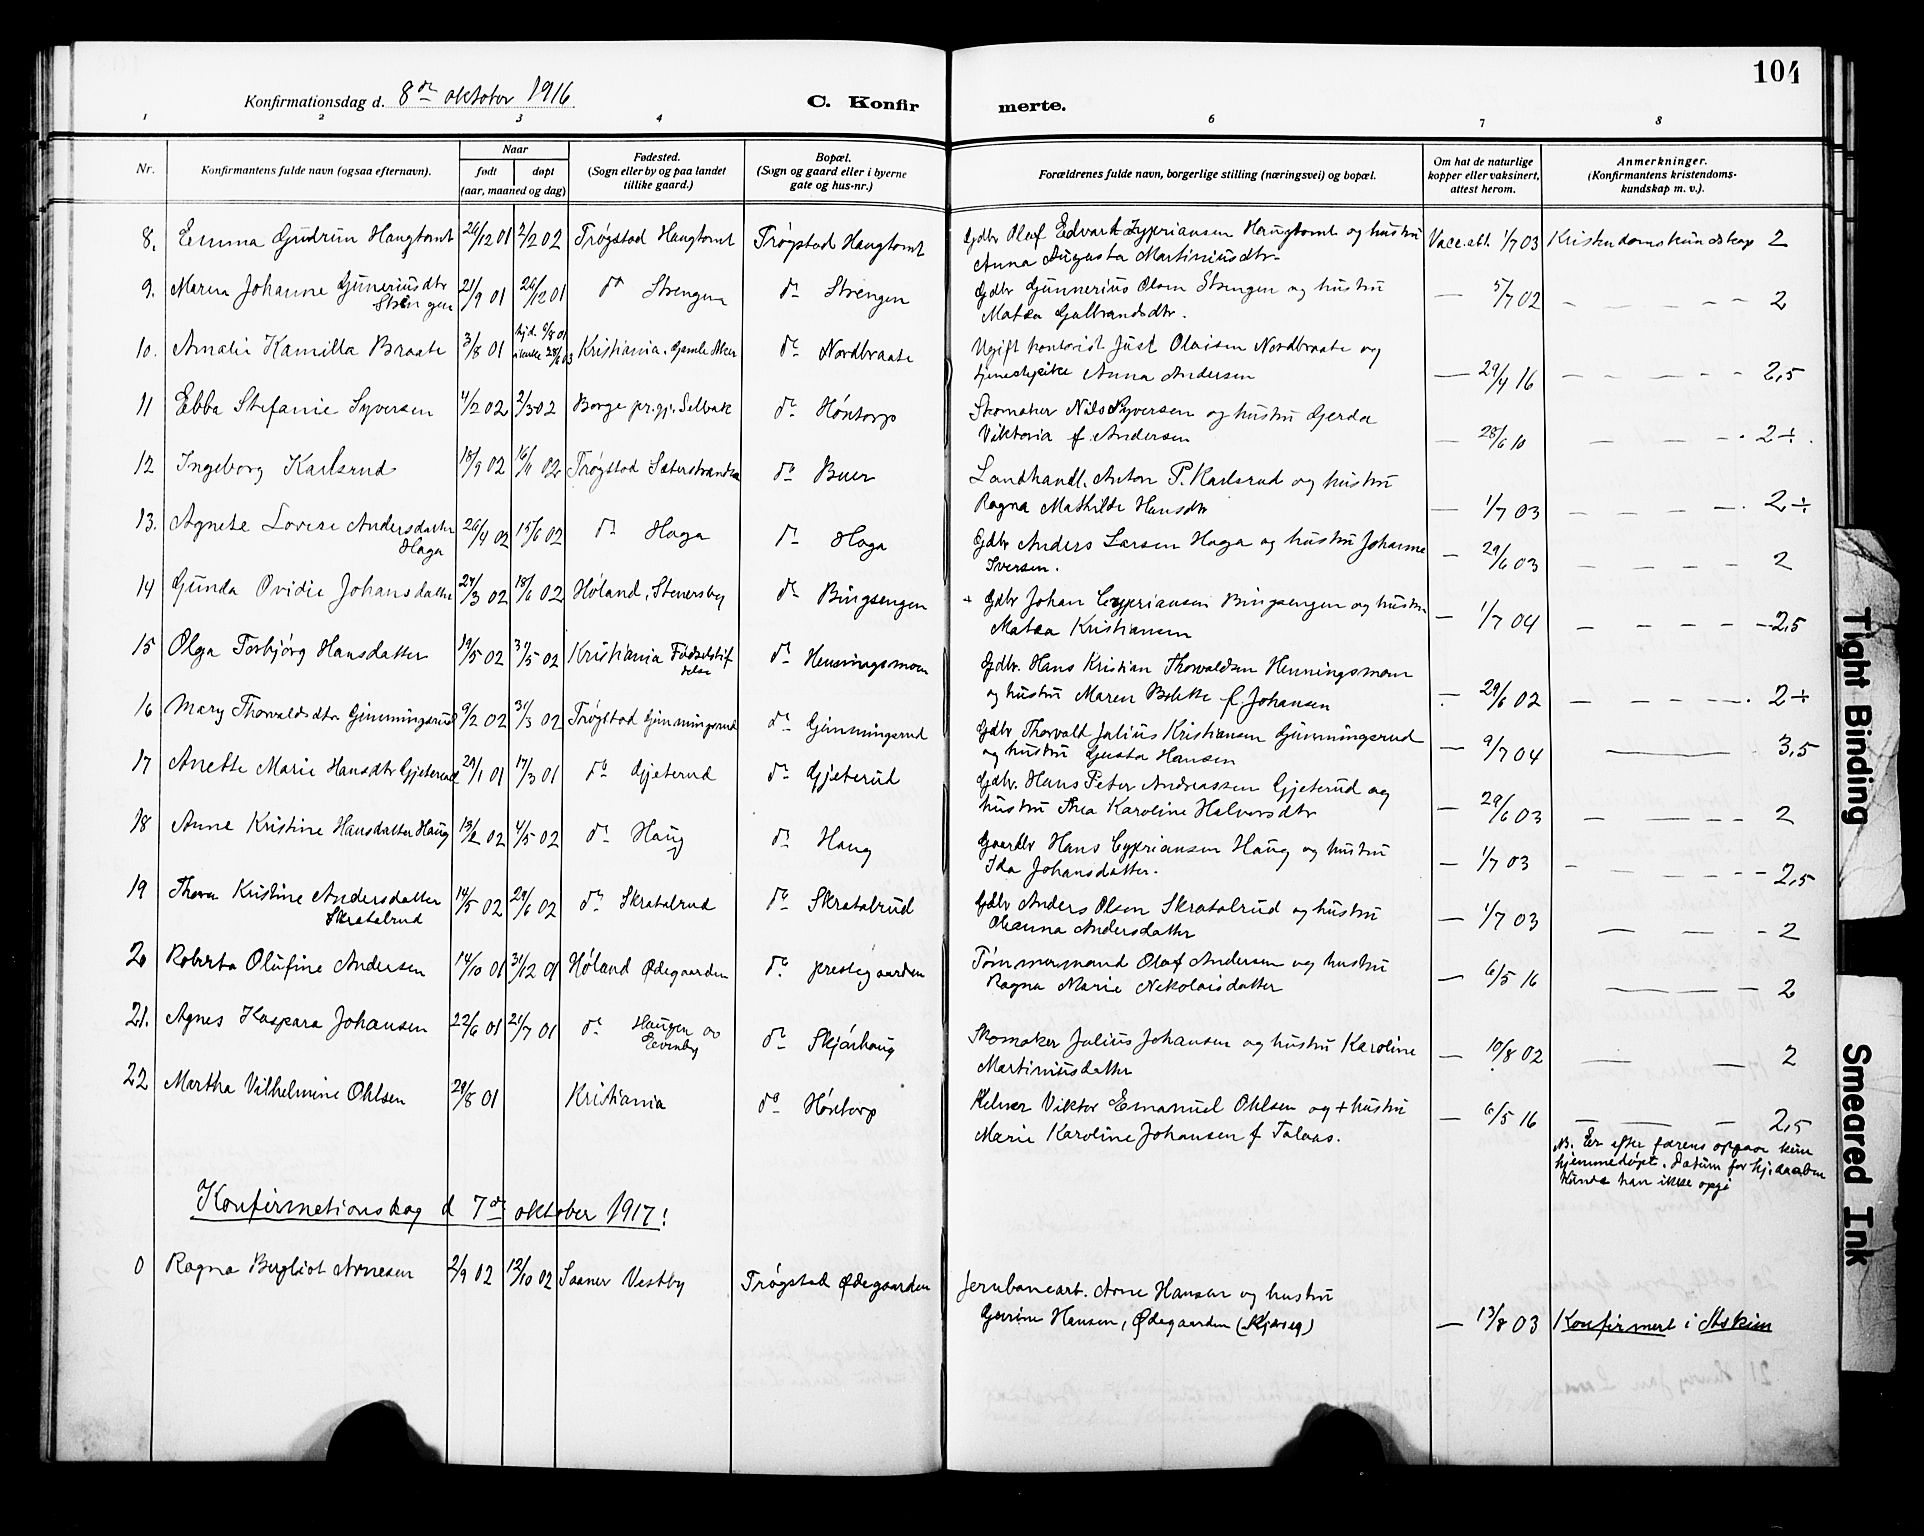 104
Konfirmationsdag d. 8de oktober 1916
C. Konfir
merte.
1 2 3 4 5 6 7 8
Nr.
Konfirmantens fulde navn (ogsaa efternavn).
Naar
født døpt
(aar, maaned og dag)
Fødested.
(Sogn eller by og paa landet
tillike gaard.)
Bopæl.
(Sogn og gaard eller i byerne
gate og hus-nr.)
Forældrenes fulde navn, borgerlige stilling (næringsvei) og bopæl.
Om hat de naturlige
kopper eller vaksinert,
attest herom.
Anmerkninger.
(Konfirmantens kristendoms-
kundskap m. v.).
8. Emma Gudrun Haugtomt 26/12 01 2/2 02 Trøgstad Haugtomt Trøgstad Haugtomt Gdbr Olaf Edvart Zypriansen Haugtomt og hustru Vacc.att. 1/7 03 Kristendomskundskap 2
Anna Augusta Martiniusdtr
9. Maren Johanne Guneriusdtr 21/9 01 26/12 01 do Strengen do Strengen Gdbr Gunnerius Olsen Strengen og hustru — 5/7 02 — — — — 2
Strengen Matea Gulbrandsdtr.
10. Amalie Kamilla Braate 3/8 01 hjd. 6/8 01 Kristiania. Gamle Aker do Nordbraate Ugift kontorist Just Olaisen Nordbraate og
tjenestepike Anna Andersen — 29/4 16 — — — — 2,5
11 Ebba Stefanie Syversen 4/2 02 2/3 02 Borge pr.gj. Selbak do Høntorp Skomaker Nils Syversen og hustru Gerda
Viktoria f. Andersen — 28/6 10 — — — 2÷.
12 Ingeborg Karlsrud 18/9 02 16/11 02 Trøgstad Sæterstranden do Buer Landhandl. Anton P. Karlsrud og hustru
Ragna Mathilde Hansdtr — 1/7 03 — — — — 2÷
13. Agnete Lovise Andersdatter 26/4 02 15/6 02 do Haga do Haga Gdbr Anders Larsen Haga og hustru Johanne — 29/6 03 — — — — 2
Haga Iversen.
14 Gunda Ovidie Johansdatter 24/3 02 18/6 02 Høland, Stenersby do Bingsengen + Gdbr Johan Cypriansen Bingsengen og hustru
Matea Kristiansen — 1/7 04 — — — — 2,5
15 Olga Torbjørg Hansdatter 19/5 02 31/5 02 Kristiania Fødselstif do Henningsmoen Gdbr. Hans Kristian Thorvaldsen Henningsmoen
telse og hustru Maren Bolette f. Johansen — 29/6 02 — — — — 2÷
16 Mary Thorvaldsdtr Gimmingsrud 9/2 02 31/3 02 Trøgstad Gimmingsrud do Gimmingsrud Gdbr Thorvald Julius Kristiansen Gimmingsrud
og hustru Gusta Hansen — 9/7 04 — 3,5
17 Anette Marie Hansdtr Gjeterud 29/1 01 17/3 01 do Gjeterud do Gjeterud Gdbr. Hans Peter Andreassen Gjeterud og
hustru Thea Karoline Halvorsdtr — 29/6 03 — — — — 2
18 Anne Kristine Hansdatter Haug 13/2 02 4/5 02 do Haug do Haug Gaardbr Hans Cypriansen Haug og hustru
Ida Johansdatter. — 1/7 03 — — — — 2,5
19 Thora Kristine Andersdatter 14/5 02 29/6 02 do Skratalrud do Skratalrud Gdbr Anders Olsen Skratalrud og hustru — 1/7 03
Skratalrud Oleanna Andersdatter — — — 2
20 Roberta Olufine Andersen 14/10 01 31/12 01 Høland Ødegaarden do prestegaarden Tømmermand Olaf Andersen og hustru
Ragna Marie Nikolaisdatter — 6/5 16 — — 2
21. Agnes Kaspara Johansen 22/6 01 21/7 01 do Haugen av do Skjørhaug Skomaker Julius Johansen og hustru Karoline
Martiniusdatter — 10/8 02 — — 2
22 Martha Vilhelmine Ohlsen 29/8 01 Kristiania do Høntorp Kelner Viktor Emanuel Ohlsen og + hustru
Marie Karoline Johansen f Talaas. — 6/5 16 — — — 2,5
NB. Er efter farens opgave kun
hjemmedøpt. Datum for hj.daaben
kunde han ikke opgi
Konfirmationsdag d 7de oktober 1917!
0 Ragna Bergliot Arnesen 2/9 02 12/10 02 Saaner Vestby Trøgstad Ødegaarden Jernbanearb. Arne Hansen og hustru
Hansen, Ødegaarden — 13/8 03 Konfirmert i Askim
Tight Binding
Smeared Ink